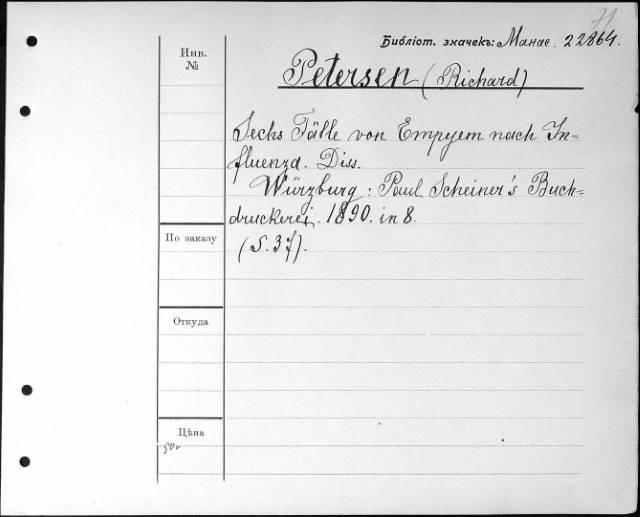 71
Библіот. значекъ: Манас. 22864.
Инв.
№
Petersen (Richard)
Sechs Fälle von Empyem nach In-
fluenza. Diss.
Würzburg: Paul Scheiner's Buch-
druckerei. 1890. in 8.
(S. 37).
По заказу
Откуда
Цѣна